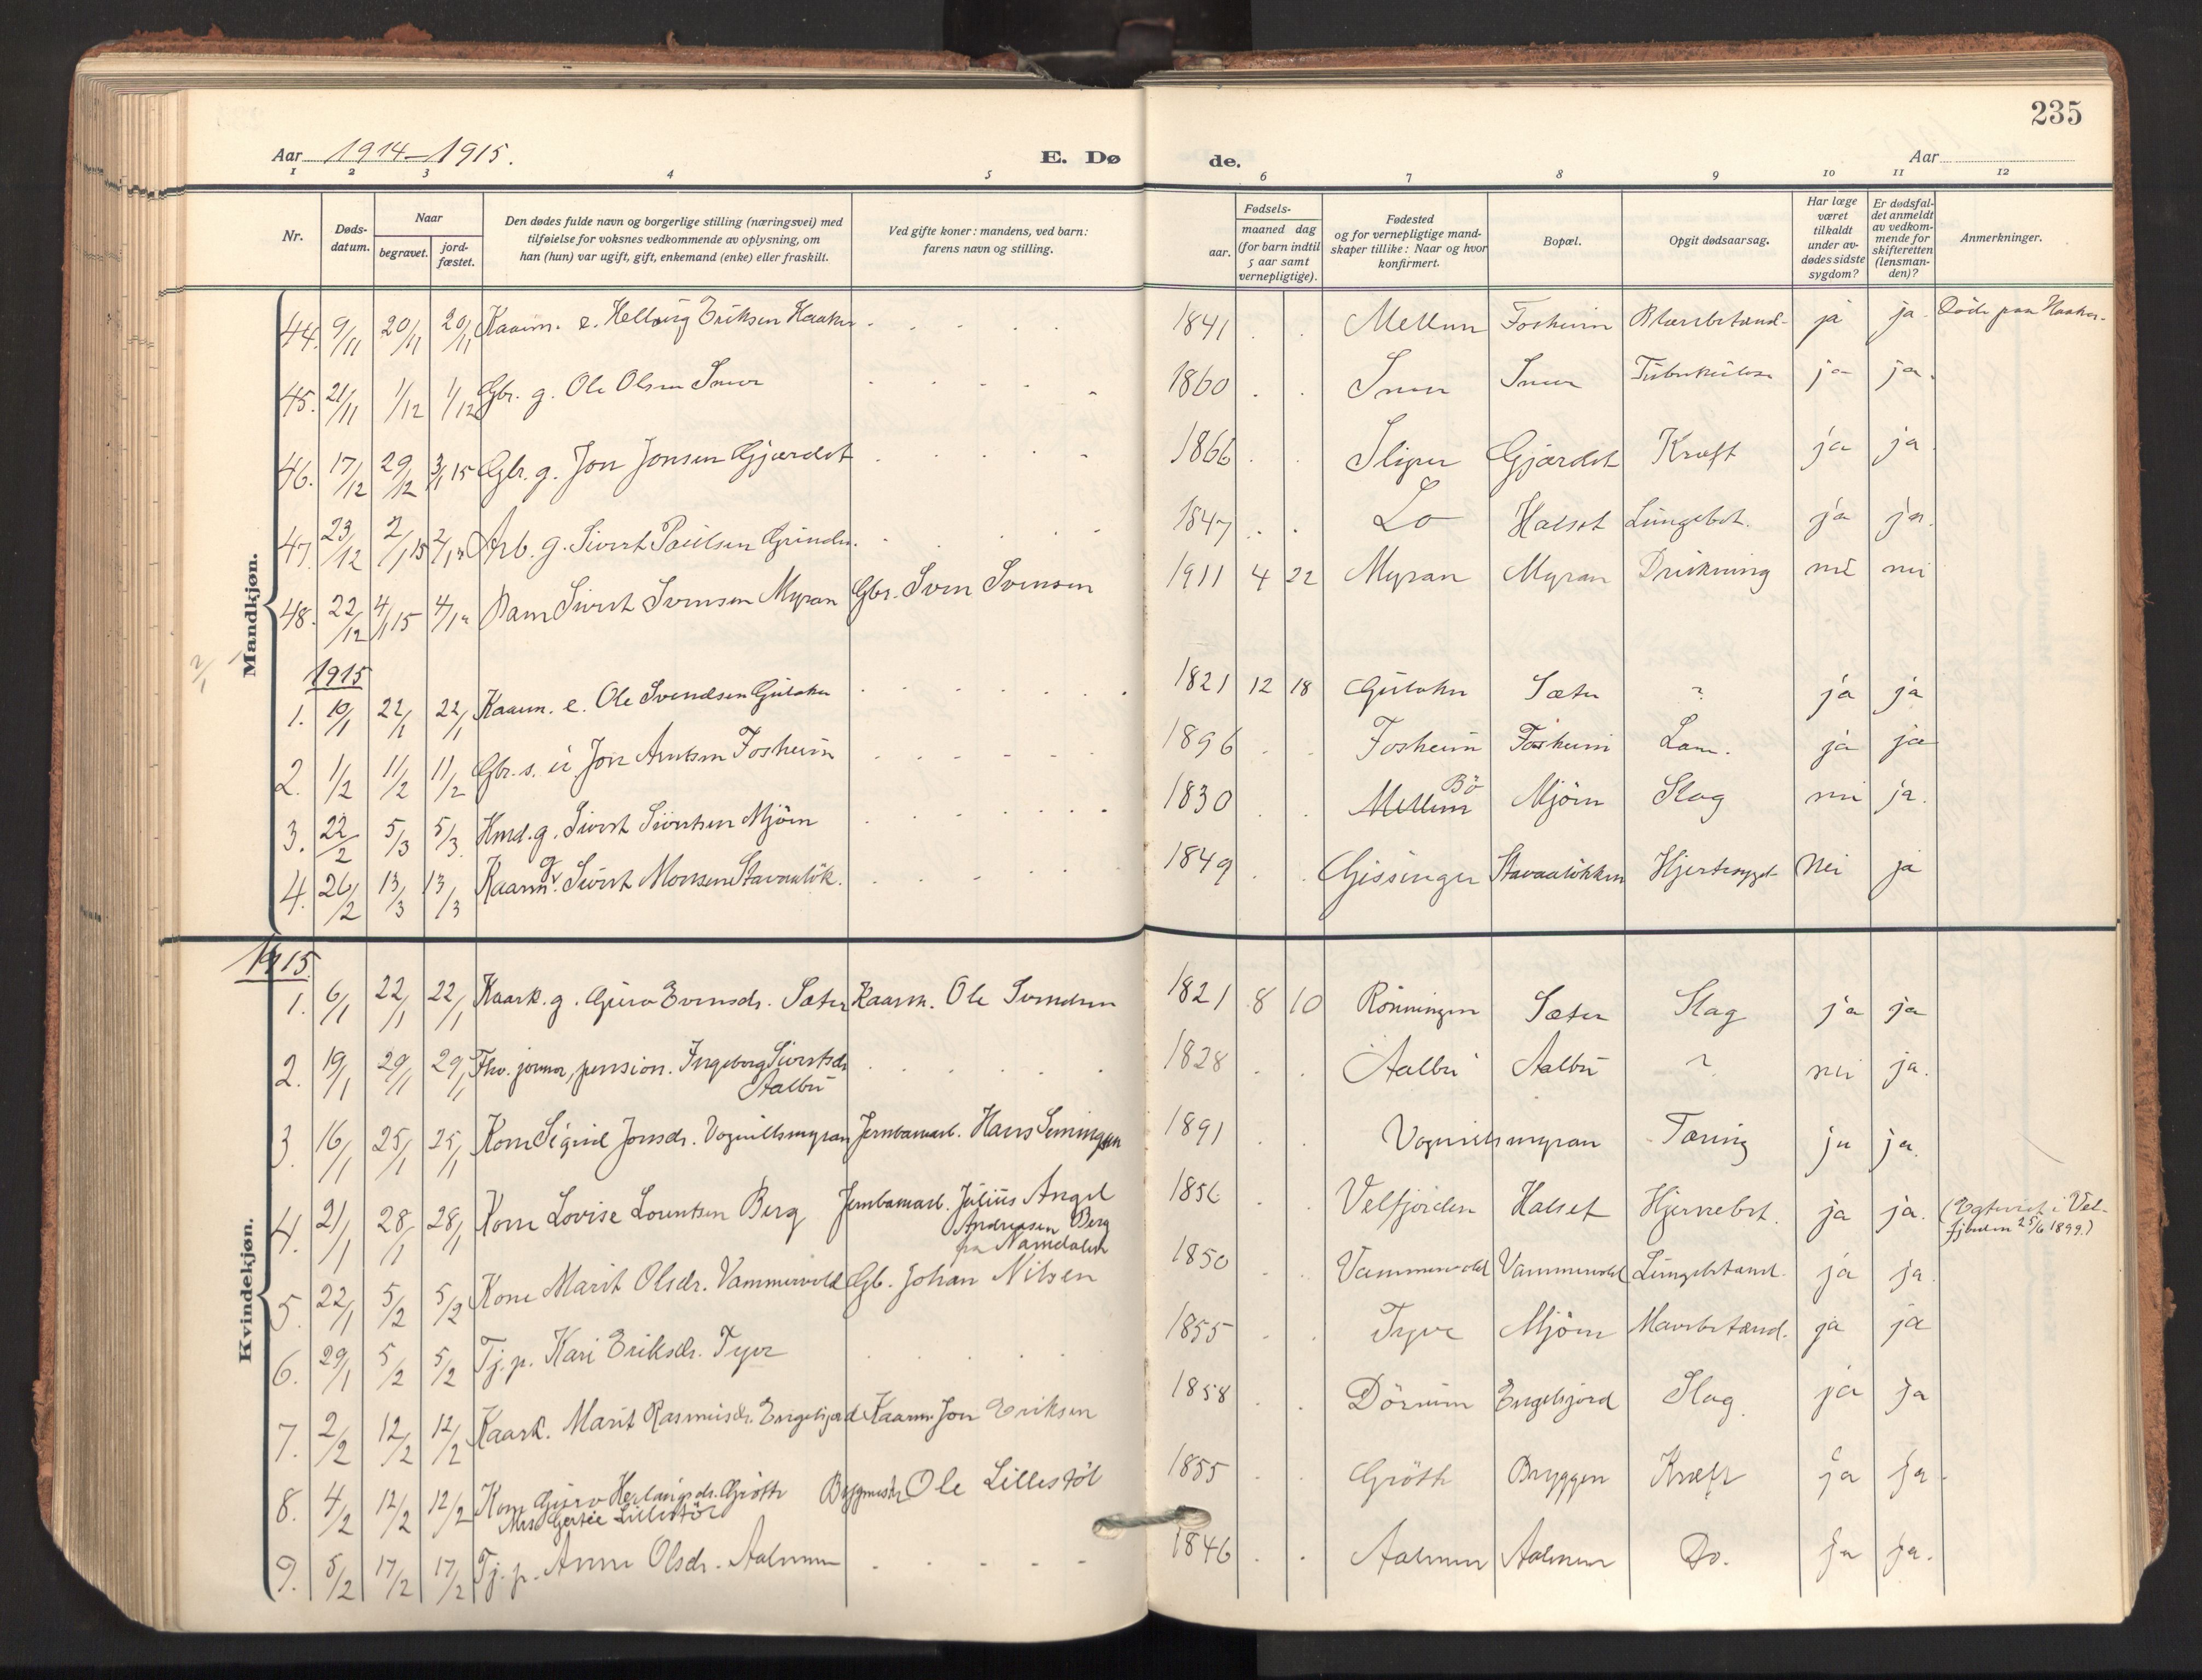 235
Aar 1914–1915.
E. Dø
de.
Aar
1 2 3 4 5 6 7 8 9 10 11 12
Nr.
Døds-
datum.
Naar
begravet.
jord-
fæstet.
Den dødes fulde navn og borgerlige stilling (næringsvei) med
tilføielse for voksnes vedkommende av oplysning, om
han (hun) var ugift, gift, enkemand (enke) eller fraskilt.
Ved gifte koner: mandens, ved barn:
farens navn og stilling.
Fødsels-
aar.
maaned dag
(for barn indtil
5 aar samt
vernepligtige).
Fødested
og for vernepligtige mand-
skaper tillike: Naar og hvor
konfirmert.
Bopæl.
Opgit dødsaarsag.
Har læge
været
tilkaldt
under av-
dødes sidste
sygdom?
Er dødsfal-
det anmeldt
av vedkom-
mende for
skifteretten
(lensman-
den)?
Anmerkninger.
Mandkjøn.
44. 9/11 20/11 20/11 Kaarm. e. Eriksen Haaker 1841 Mellem Fosheim ja ja. Døde paa Haaker.
45. 21/11 1/12 1/12 Gbr. g. Ole Olsen Snuv 1860 Snuv Snuv Tuberkulose ja ja.
46. 17/12 29/12 3/1 15 Gbr. g. Jon Jonsen Gjærdet 1866 Sliper Gjærdet Kræft ja ja
47. 23/12 2/1 15 2/1 15 Arb. g. Sivert Paulsen Grinden. 1847 Lo Halset Lungebet. ja ja.
48. 22/12 4/1 15 4/1 Barn Sivert Svensen Myran Gbr. Sven Svensen 1911 4 22 Myran Myran Drukning nei nei
1915
1. 10/1 22/1 22/1 Kaarm. e. Ole Svendsen Gulaker 1821 12 18 Gulaker Sæter ? ja ja
2. 1/2 11/2 11/2 Gbr. s. u. Jon Arntsen Fosheim 1896 Fosheim Fosheim Lam. ja ja
3. 22/2 5/3 5/3 Hmd. g. Sivert Sivertsen Mjöen 1830 Mellem Bö Mjöen Slag nei ja.
4. 26/2 13/3 13/3 Kaarm. g. Sivert Monsen Stavaalök. 1849 Gissinger Stavaalökken Hjertesygd. Nei ja
Kvindekjøn.
1915.
1. 6/1 22/1 22/1 Kaark. g. Guro Evensdr. Sæter Kaarm. Ole Svendsen 1821 8 10 Rönningen Sæter Slag ja ja
2. 19/1 29/1 29/1 Fhv. jormor, pension. Ingeborg Sivertsdr. 1828 Aalbu Aalbu ? nei ja.
Aalbu
3. 16/1 25/1 25/1 Kone Sigrid Jonsdr. Vognillsmyran Jernbanearb. Hans 1891 Vognillsmyran Tæring ja ja.
4. 21/1 28/1 28/1 Kone Lovise Lorentsen Berg Jernbanearb. Julius Angel 1856 Velfjorden Halset Hjernebet. ja ja. (Egteviet i Vel-
Andreasen Berg fjorden 25/6 1899.)
fra Namdalen
5. 22/1 5/2 5/2 Kone Marit Olsdr. Vammervold Gb. Johan Nilsen 1850 Vammervold Vammervold Lungebetænd. ja ja.
6. 29/1 5/2 5/2 Tj. p. Kari Eriksdr. Tyve 1855 Tyve Mjöen Mavebetænd. ja ja
7. 2/2 12/2 12/2 Kaark. Marit Rasmusdr. Engelsjord Kaarm. Jon Eriksen 1858 Dörum Engelsjord Slag. ja ja
8. 4/2 12/2 12/2 Kone Guro Grötte Bygmester Ole Lillestöl 1855 Grötte Bryggen Kræft ja ja.
Mrs Lillestöl
9. 5/2 17/2 17/2 Tj. p. Anne Olsdr. Aalmen 1846 Aalmen Aalmen Do. ja ja.